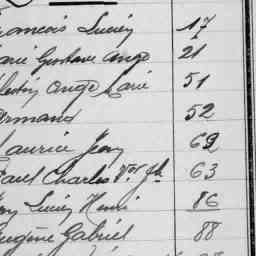 François Lucien 17
Marie Gustave Ange 21
Ange Marie 51
Armand 52
Maurice Jean 69
Paul Charles Vor Jh 63
Lucien Henri 86
Eugène Gabriel 88